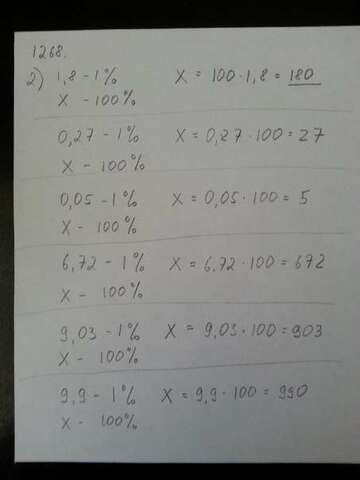 1268.
2) 1,8 - 1% X = 100 · 1,8 = 180
X - 100%
0,27 - 1% X = 0,27 · 100 = 27
X - 100%
0,05 - 1% X = 0,05 · 100 = 5
X - 100%
6,72 - 1% X = 6,72 · 100 = 672
X - 100%
9,03 - 1% X = 9,03 · 100 = 903
X - 100%
9,9 - 1% X = 9,9 · 100 = 990
X - 100%